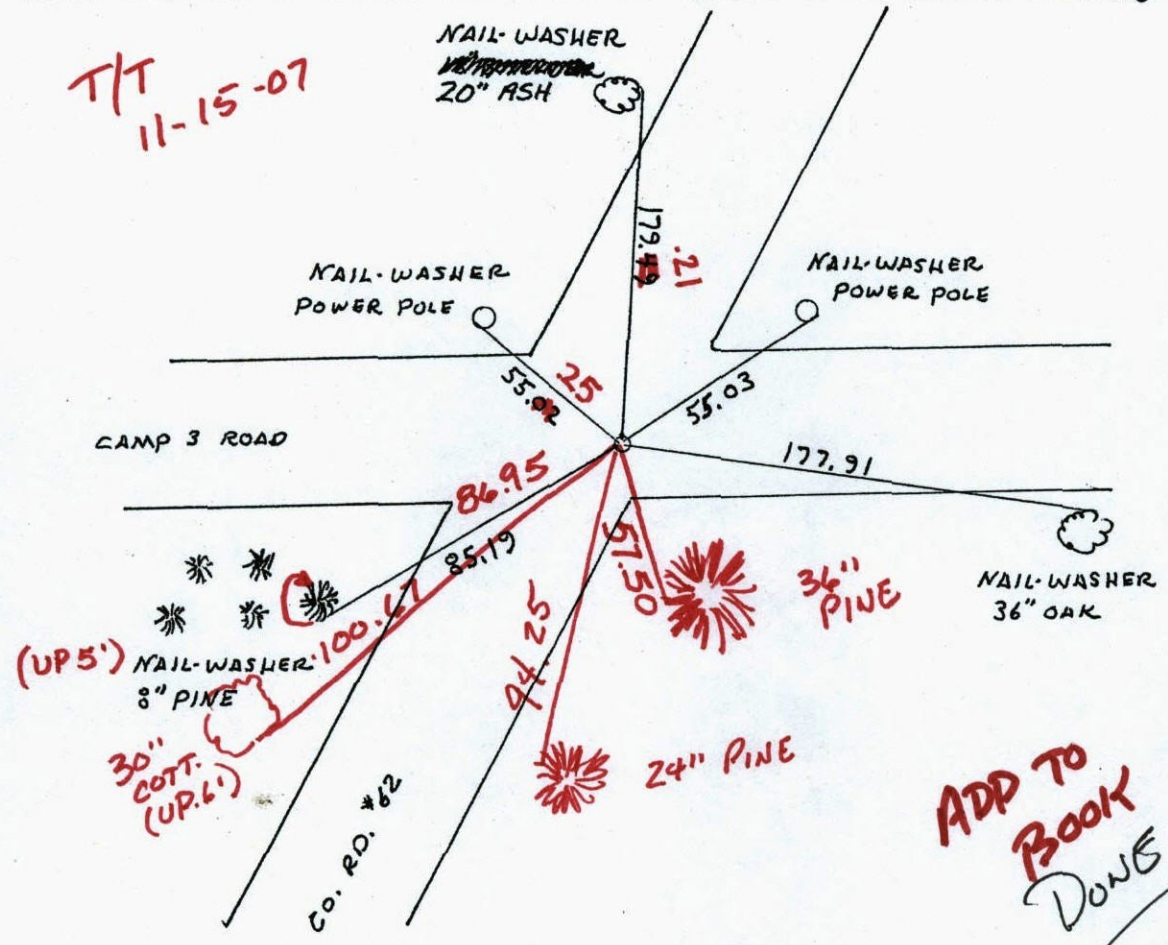 T/T
11-15-07
NAIL-WASHER
20" ASH
179.49
.21
NAIL-WASHER
POWER POLE
NAIL-WASHER
POWER POLE
55.02
.25
55.03
CAMP 3 ROAD
177.91
86.95
85.19
57.50
36"
PINE
NAIL-WASHER
36" OAK
100.67
94.25
(UP 5')
NAIL-WASHER
8" PINE
30"
COTT.
(UP.6')
24" PINE
CO. RD. #62
ADD TO
BOOK
DONE